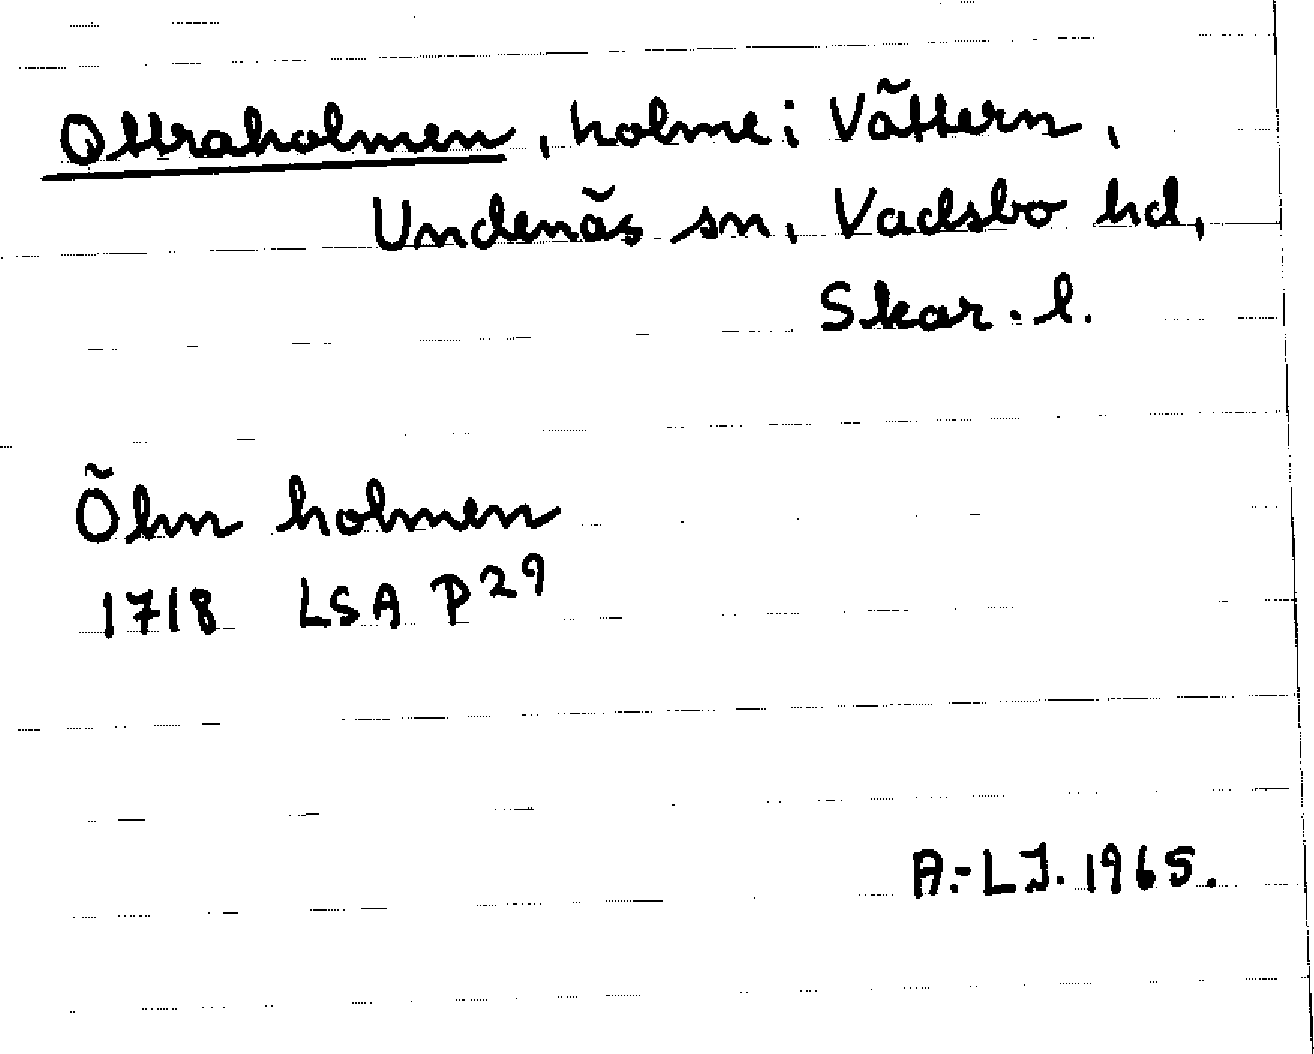 Ottraholmen, holme i Vättern,
Undenäs sn, Vadsbo hd,
Skar. l.
Öhn holmen
1718 LSA P29
A.-LJ. 1965.